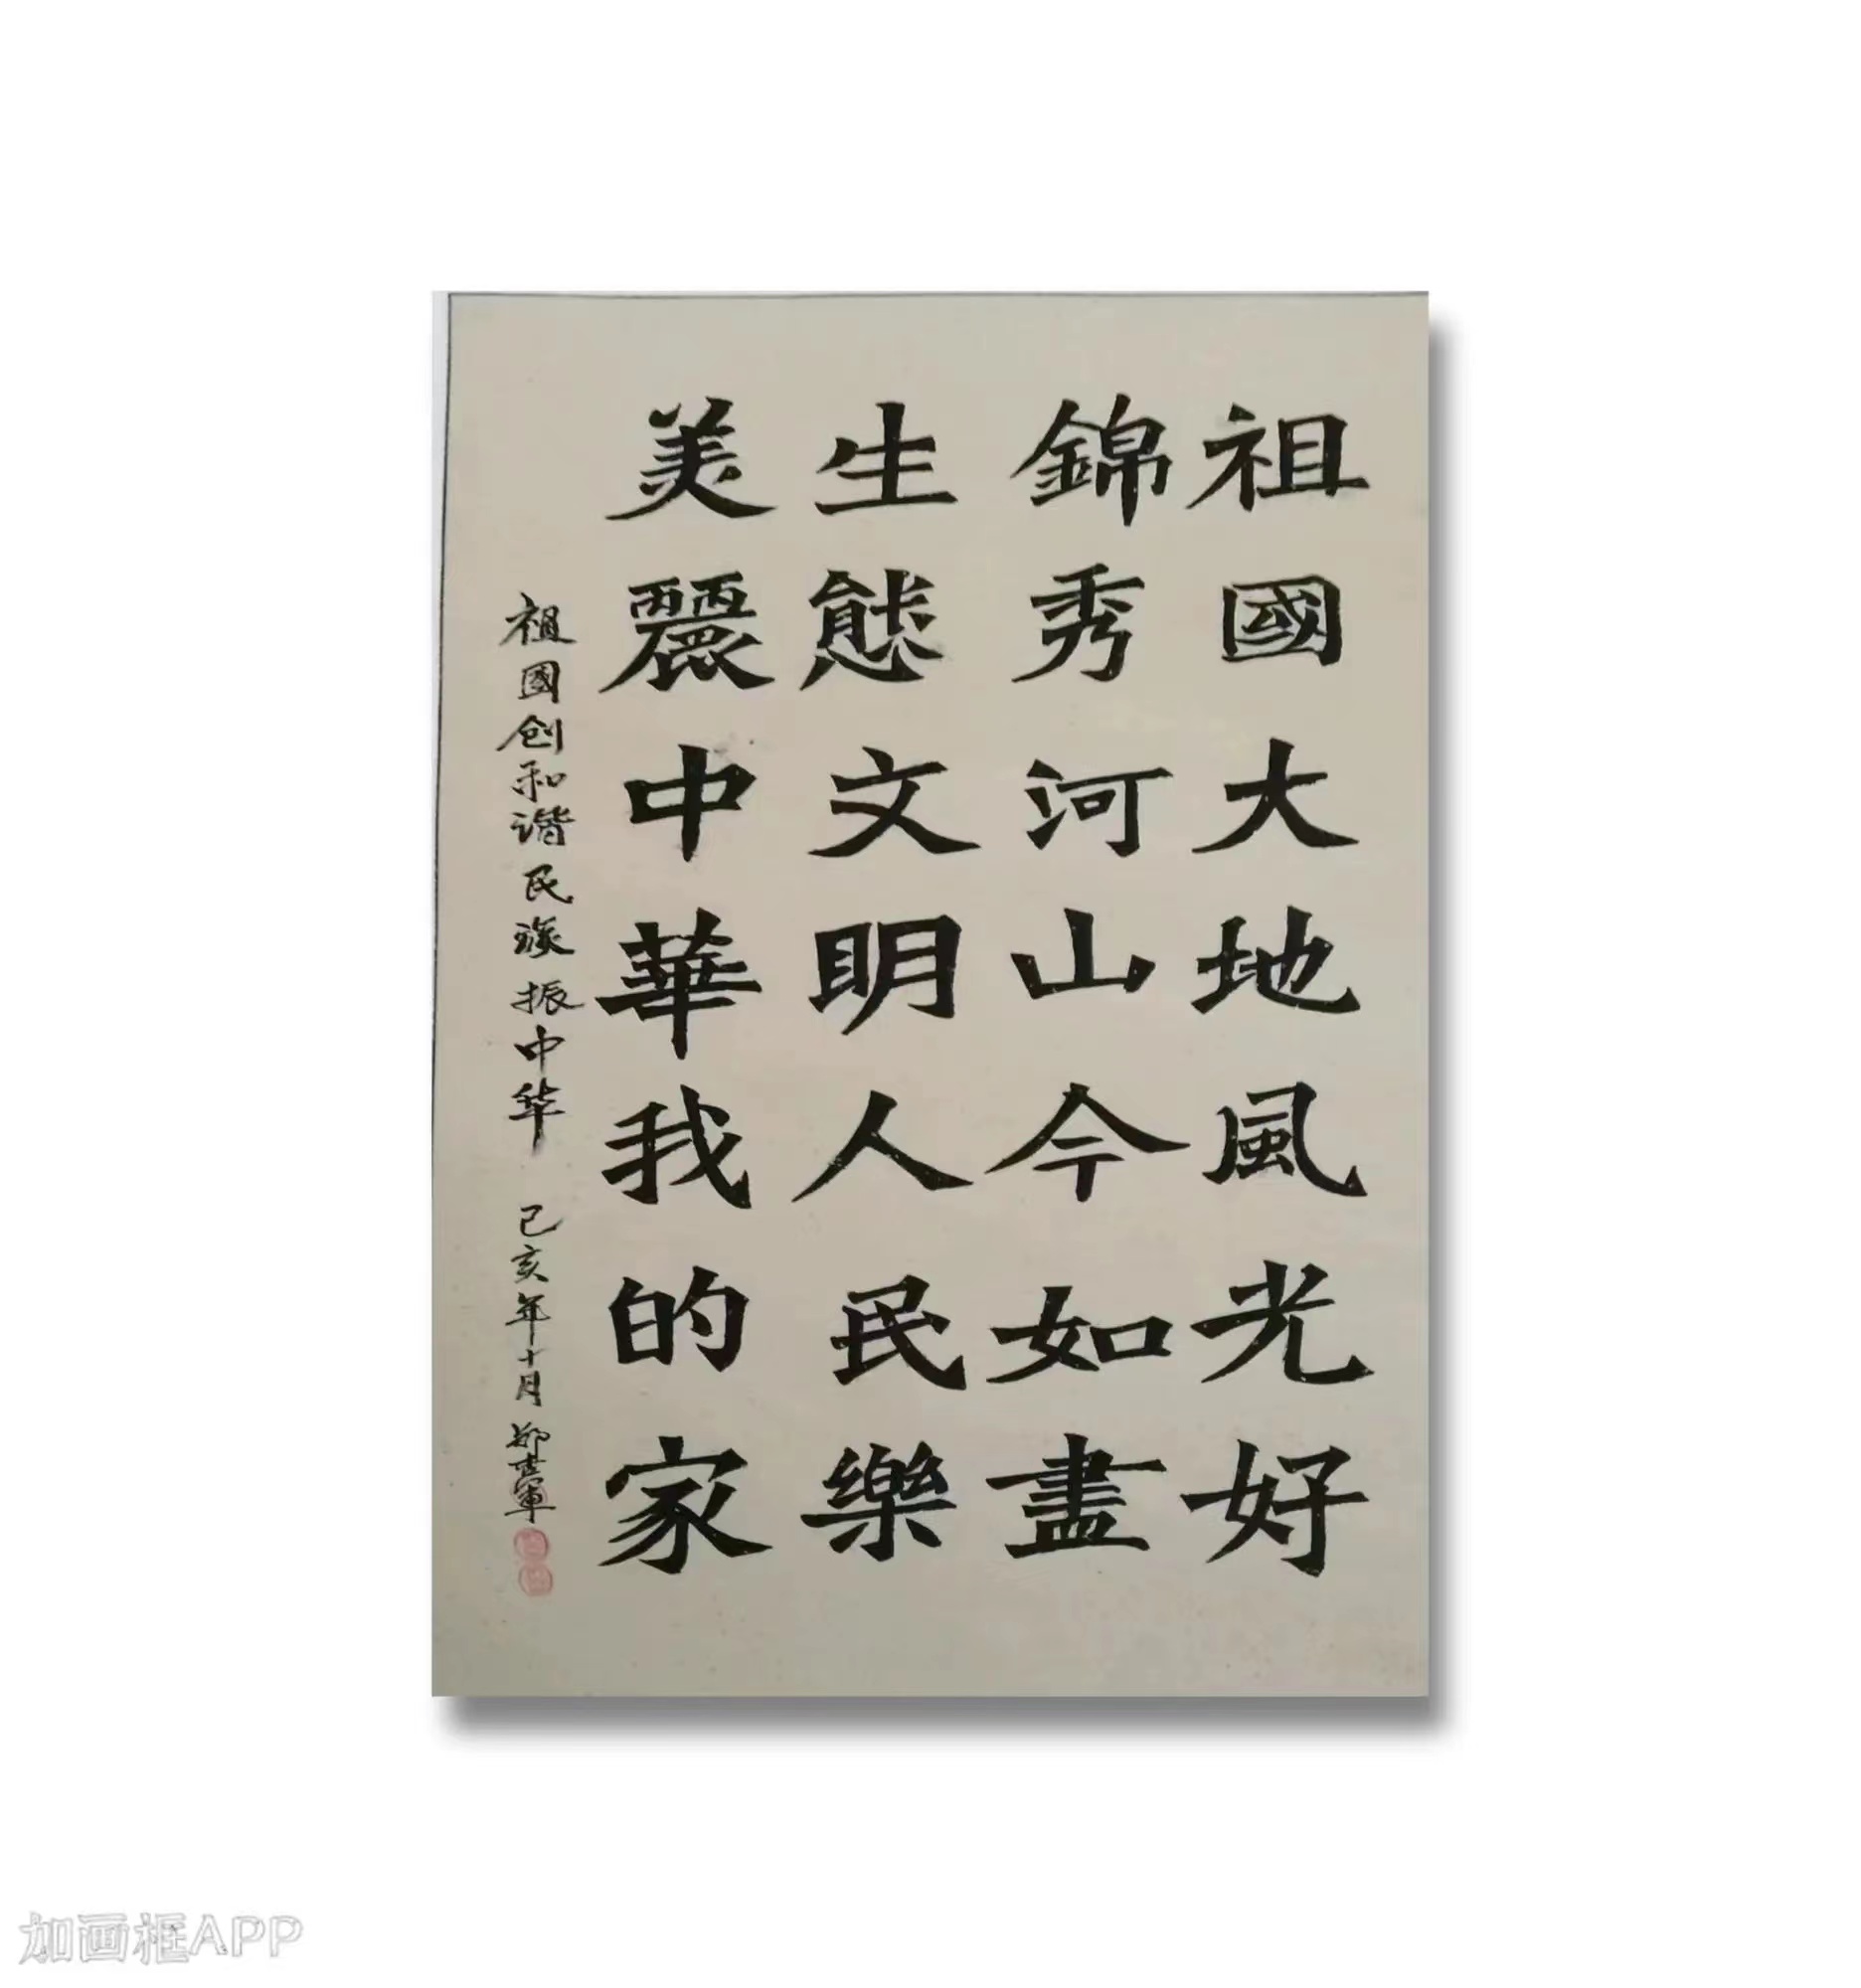 祖國大地風光好
錦秀河山今如盡
生態文明人民樂
美麗中華我的家
祖國创和谐民族振中华 己亥年十月
加画框APP